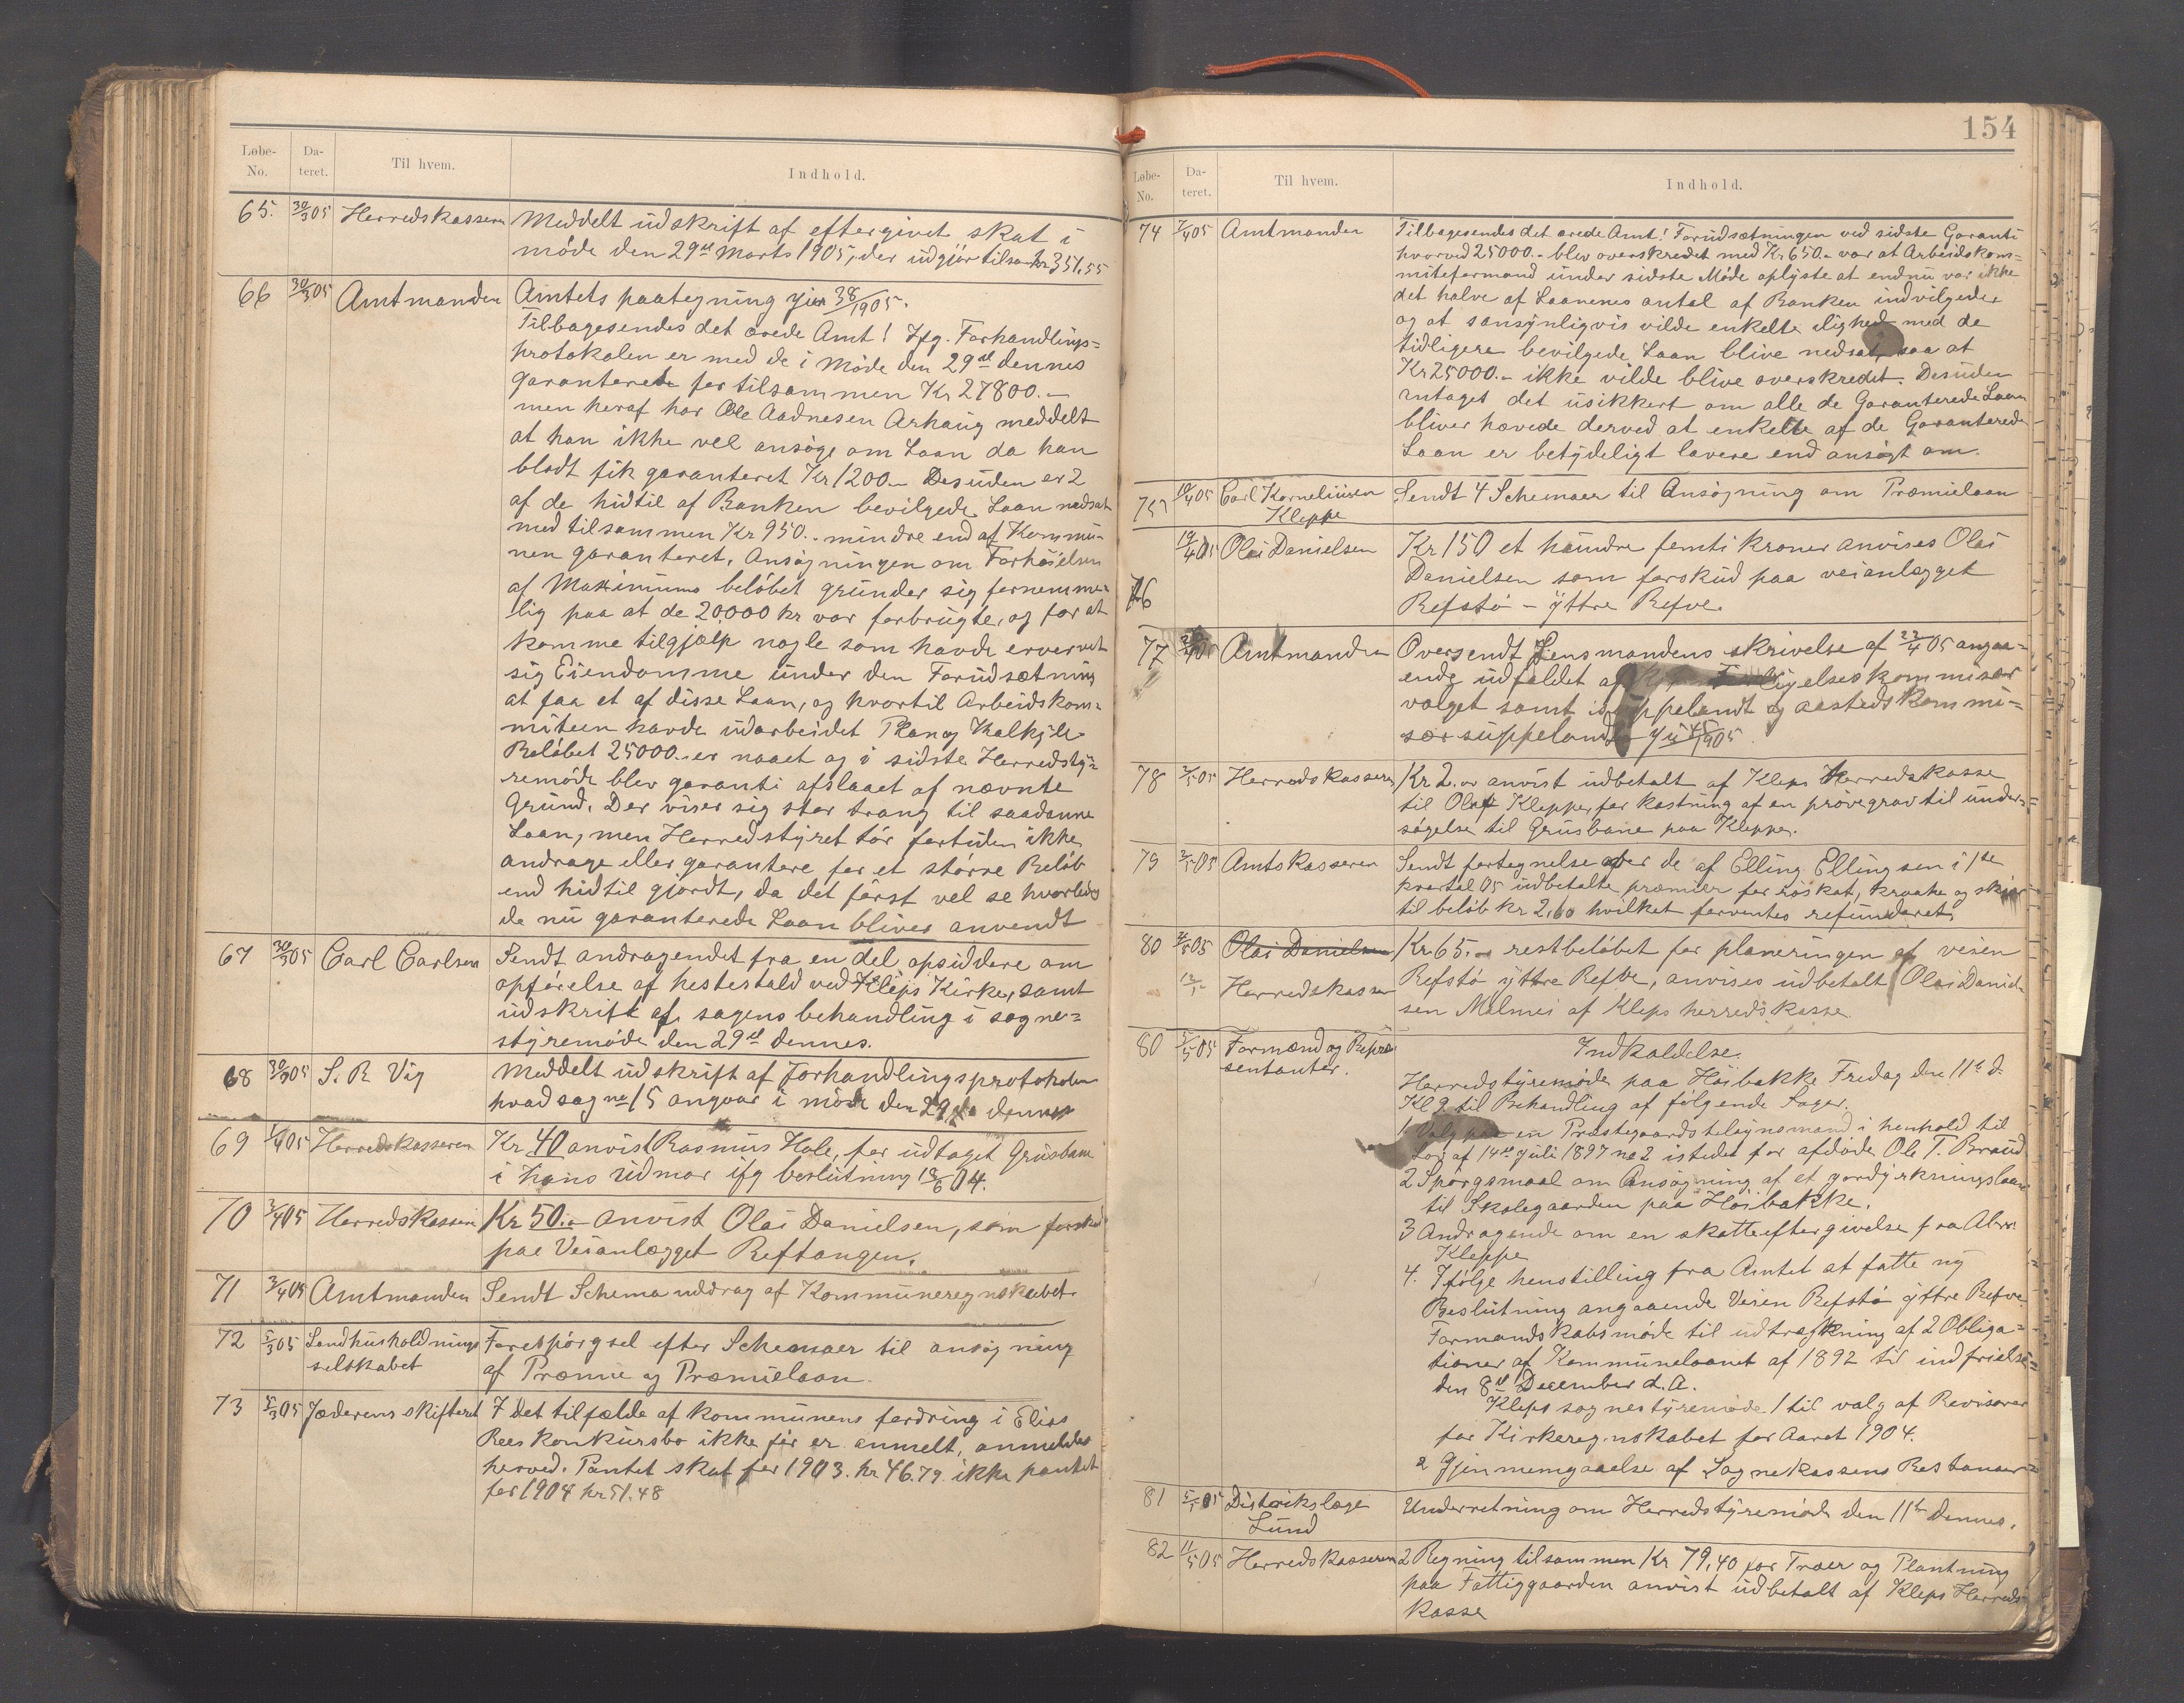 Løbe-No. Dateret. Til hvem. Indhold.
65. 30/3 05 Herredskasseren Meddelt udskrift af eftergivet skat i
møde den 29de Marts 1905, der udgjør tilsam kr 351,55
66 30/3 05 Amtmanden Amtets paategning 38/1905.
Tilbagesendes det ærede Amt! Ifg. Forhandlings=
protokolen er med de i Møde den 29de dennes
garanterede for tilsammen Kr 27800.–
men heraf har Ole Aadnesen Arhaug meddelt
at han ikke vel ansøge om Laan da han
blodt fik garanteret Kr 1200.– Desuden er 2
af de hidtil af Banken bevilgede Laan nedsat
med tilsammen Kr 950.– mindre end af Kommu-
nen garanteret. Ansøgningen om Forhøielsen
af Maximums beløbet grunder sig fornemme-
lig paa at de 20,000 kr var forbrugte, og for at
komme tilgjælp nogle som havde ervervet
sig Eiendomme under den Forudsætning
at faa et af disse Laan, og hvortil Arbeidskom=
miteen havde udarbeidet Plan og Kalkyle
Beløbet 25000.– er naaet og i sidste Herredsty=
remøde blev garanti afslaaet af nævnte
Grund. Der viser sig stor trang til saadanne
Laan, men Herredstyret tør fortiden ikke
andrage eller garantere for et større Beløb
end hidtil gjordt, da det først vel se hvorledes
de nu garanterede Laan bliver anvendt
67 30/3 05 Carl Carlsen Sendt andragendet fra en del opsiddere om
opførelse af hestestald ved Kleps Kirke, samt
udskrift af sagens behandling i sogne=
styremøde den 29de dennes.
68 30/3 05 S. R Vig Meddelt udskrift af Forhandlingsprotokolen
hvad sag no 15 angaar i møde den 29de dennes
69 1/4 05 Herredskasseren Kr 40 anvist Rasmus Hole, for udtaget Grusbane
i hans Udmar ifg beslutning 18/6 04.
70 3/4 05 Herredskasseren Kr 50.– anvist Olai Danielsen, som forskud
paa Veianlægget Reftangen.
71 3/4 05 Amtmanden Sendt Schema uddrag af Kommuneregnskabet.
72 5/3 05 Landhusholdnings
selskabet Forespørgsel efter Schemaer til ansøgning
af Præmie og Præmielaan.
73 5/3 05 Jæderens skifteret I det tilfælde af kommunens fordring i Elias
Rees konkursbo ikke før er anmelt, anmeldes
herved. Pantet skat for 1903. kr 46.79. ikke pantet
for 1904 kr 51.48
154
Løbe-No. Dateret. Til hvem. Indhold.
74 7/4 05 Amtmanden Tilbagesendes det ærede Amt! Forudsætningen ved sidste Garanti
hvorved 25000.– blev overskredet med Kr 650.– var at Arbeidskom=
miteformand under sidste Møde oplyste at endnu var ikke
det halve af Laanenes antal af Banken indvilgede
og at sansynligvis vilde enkelte lighed med de
tidligere bevilgede Laan blive nedsat, saa at
Kr 25000.– ikke vilde blive overskredet. Desuden
antaget det usikkert om alle de Garanterede Laan
bliver hævede derved at enkelte af de Garanterede
Laan er betydeligt lavere end ansøgt om.
75 10/4 05 Carl Korneliusen
Kleppe Sendt 4 Schemaer til Ansøgning om Præmielaan
76 19/4 05 Olai Danielsen Kr 150 et hundre femti kroner anvises Olai
Danielsen som forskud paa veianlægget
Refstø – yttre Refve.
77 Amtmanden Oversendt Lensmandens skrivelse af 22/4 05 angaa=
ende udfaldet af ligelseskommisær
valget samt suppelandt og aastedskommi=
sær suppelandt 1905
78 2/5 05 Herredskasseren Kr 2.00 anvist udbetalt af Kleps Herredskasse
til Olaf Kleppe, for kastning af en prøvegrav til under=
søgelse til Grusbane paa Kleppe.
79 2/5 05 Amtskasseren Sendt fortegnelse over de af Elling Ellingsen i 1ste
kvartal 05 udbetalte præmier for røskat, kraake og skjær
til beløb kr 2,60 hvilket forventes refunderet.
80 4/5 05 Olai Danielsen Kr 65.– restbeløbet for planeringen af veien
12/5 Herredskassen Refstø yttre Refve, anvises udbetalt Olai Daniel-
sen Melmei af Kleps herredskasse
80 5/5 05 Formænd og Repræ
sentanter. Indkaldelse.
Herredstyremøde paa Høibakke Fredag den 11te d.
Kl 9 til Behandling af følgende Sager.
1 Valg paa en Præstegaardstilsynsmand i henhold til
Lov af 14de Juli 1897 no 2 istedet for afdøde Ole T. Braud
2 Spørgsmaal om Ansøgning af et jorddyrkningslaan
til Skolegaarden paa Høibakke.
3 Andragende om en skatteeftergivelse fra
Kleppe
4. Ifølge henstilling fra Amtet at fatte ny
Beslutning angaaende Veien Refstø yttre Refve.
Formandskabsmøde til udtrækning af 2 Obliga=
tioner af Kommunelaanet af 1892 til indfrielse
den 8de December d. A.
Kleps sognestyremøde 1 til valg af Revisorer
for Kirkeregnskabet for Aaret 1904.
2 Gjennemgaaelse af Sognekassens Restancer
81 5/5 05 Distrikslæge
Lund Underretning om Herredstyremøde den 11te dennes.
82 11/5 05 Herredskasseren 2 Regning tilsammen Kr 79,40 for Træer og Plantning
paa Fattiggaarden anvist udbetalt af Kleps Herreds
kasse